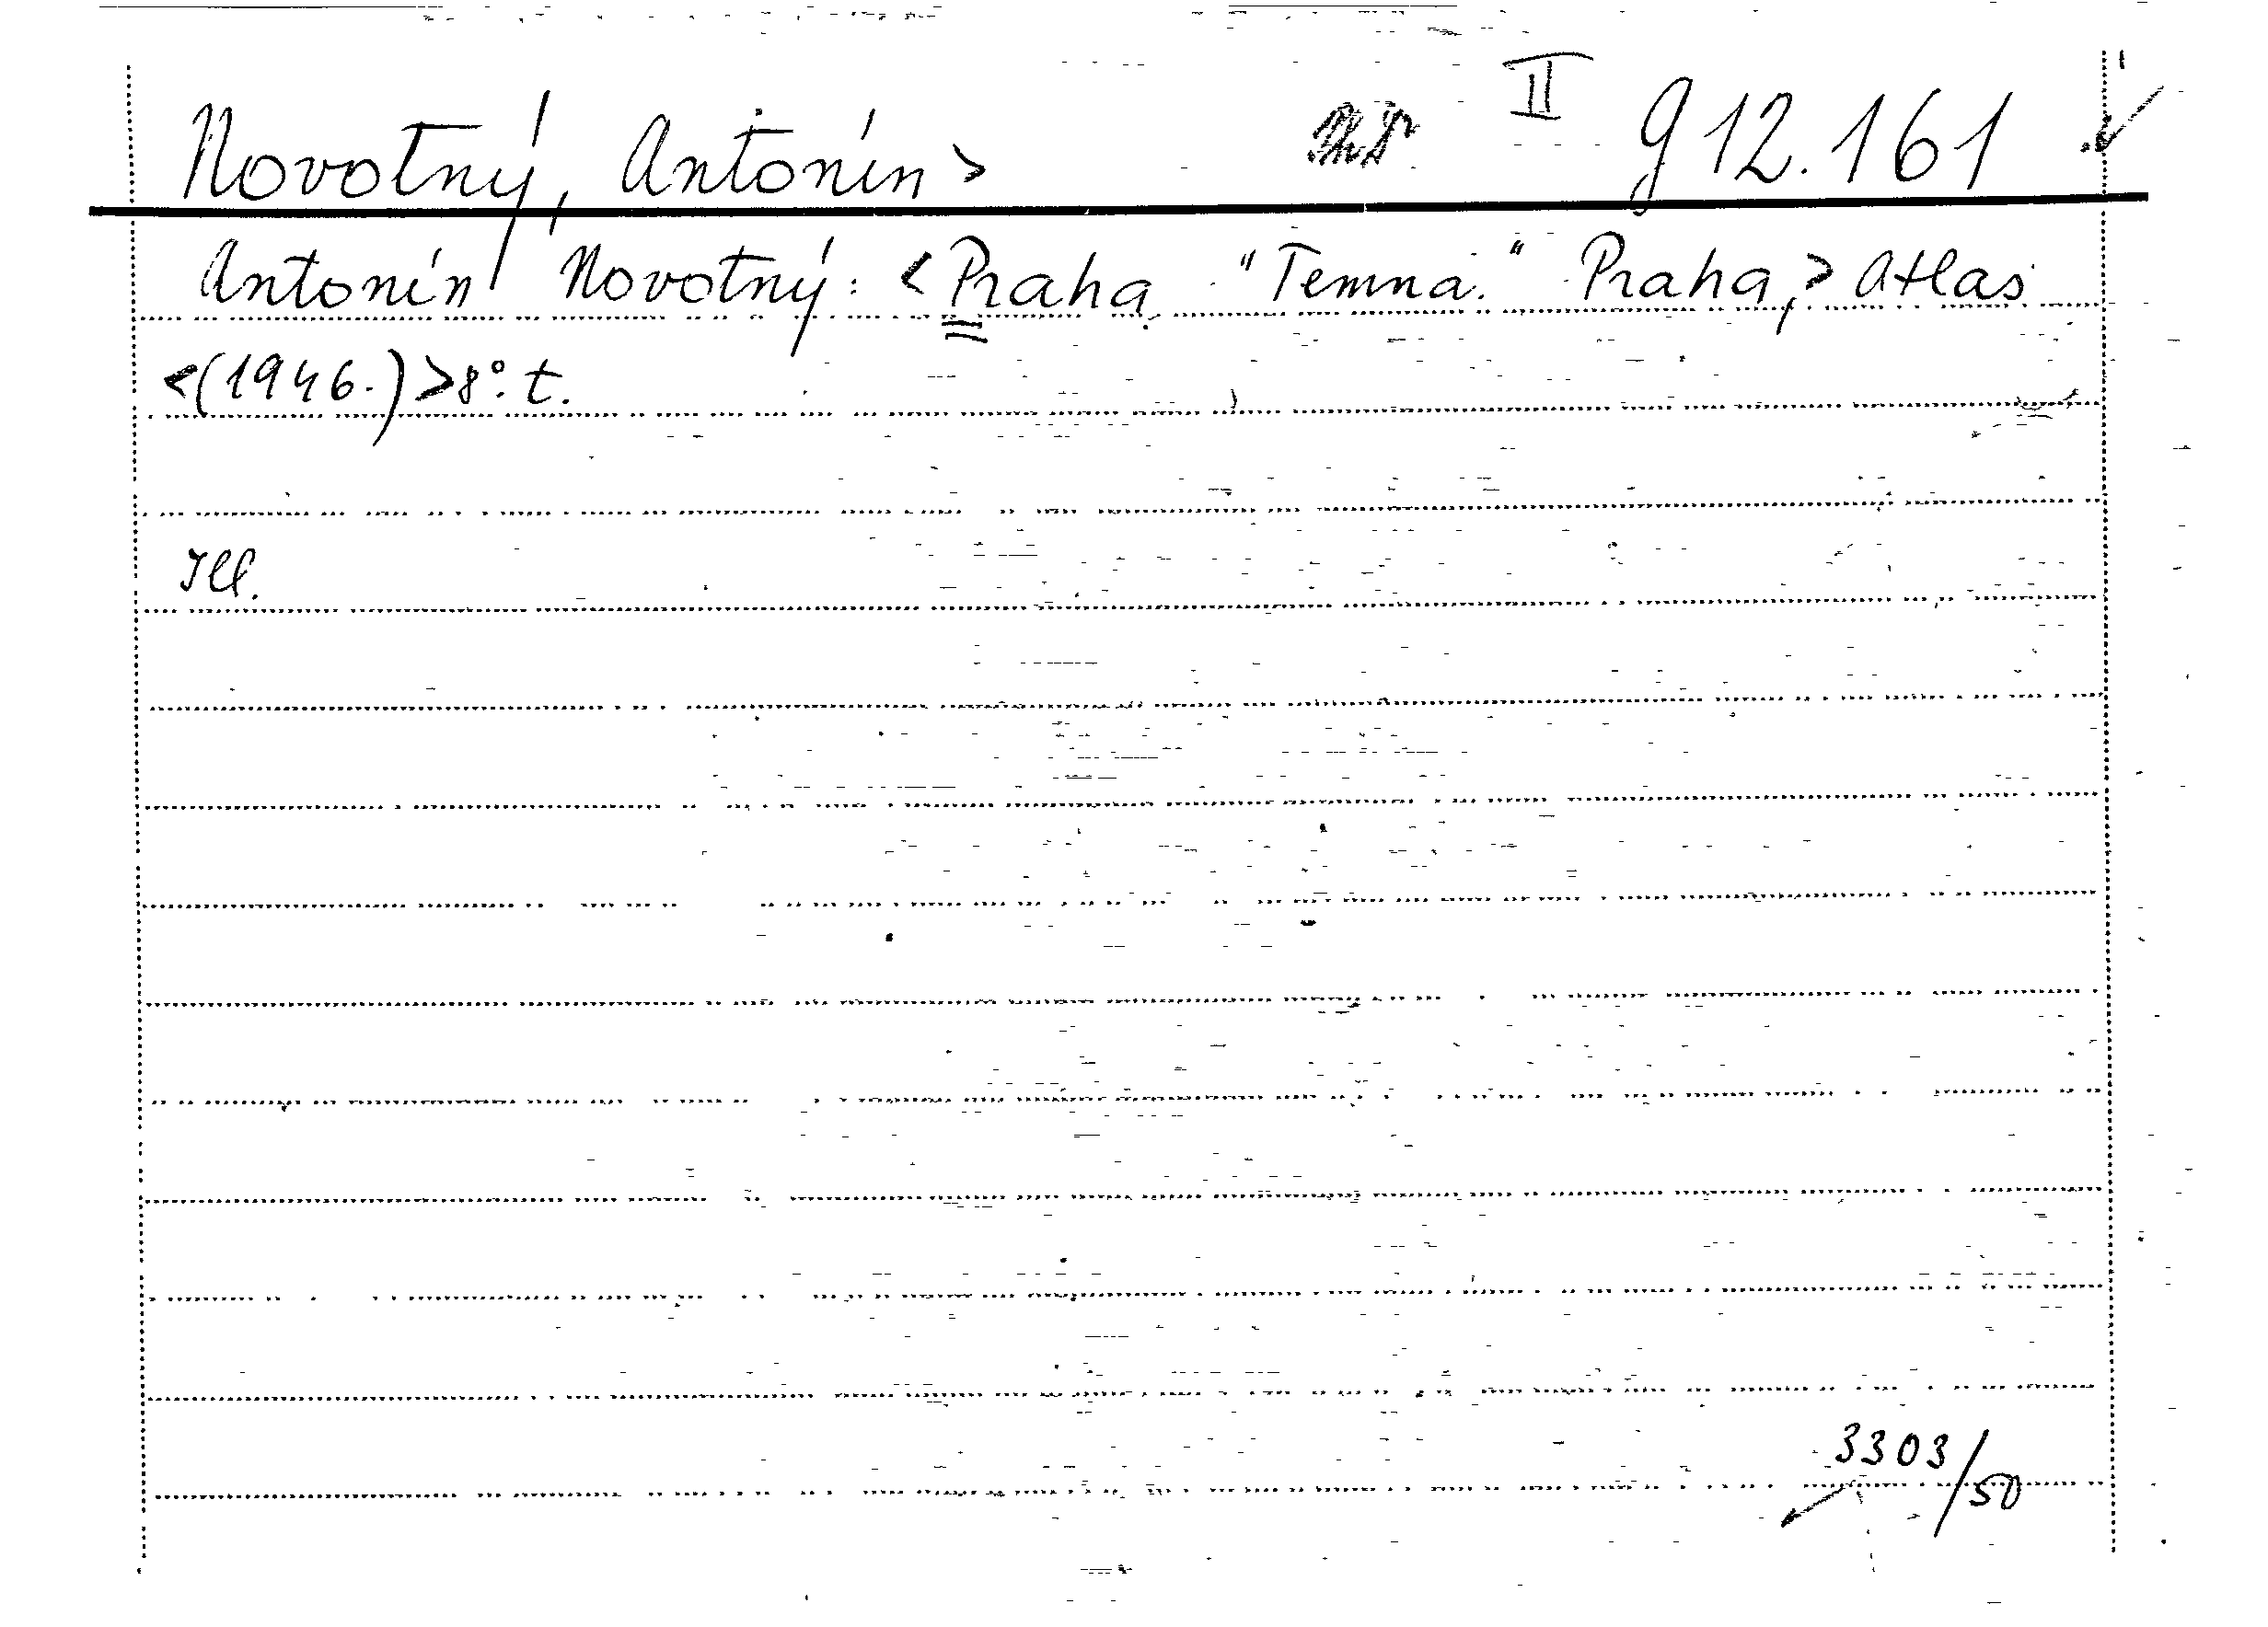 Novotný, Antonín > II 912.161
Antonín Novotný: <Praha "Temná." Praha,> Atlas
<(1946.)> 8°. t.
Ill.
3303/50